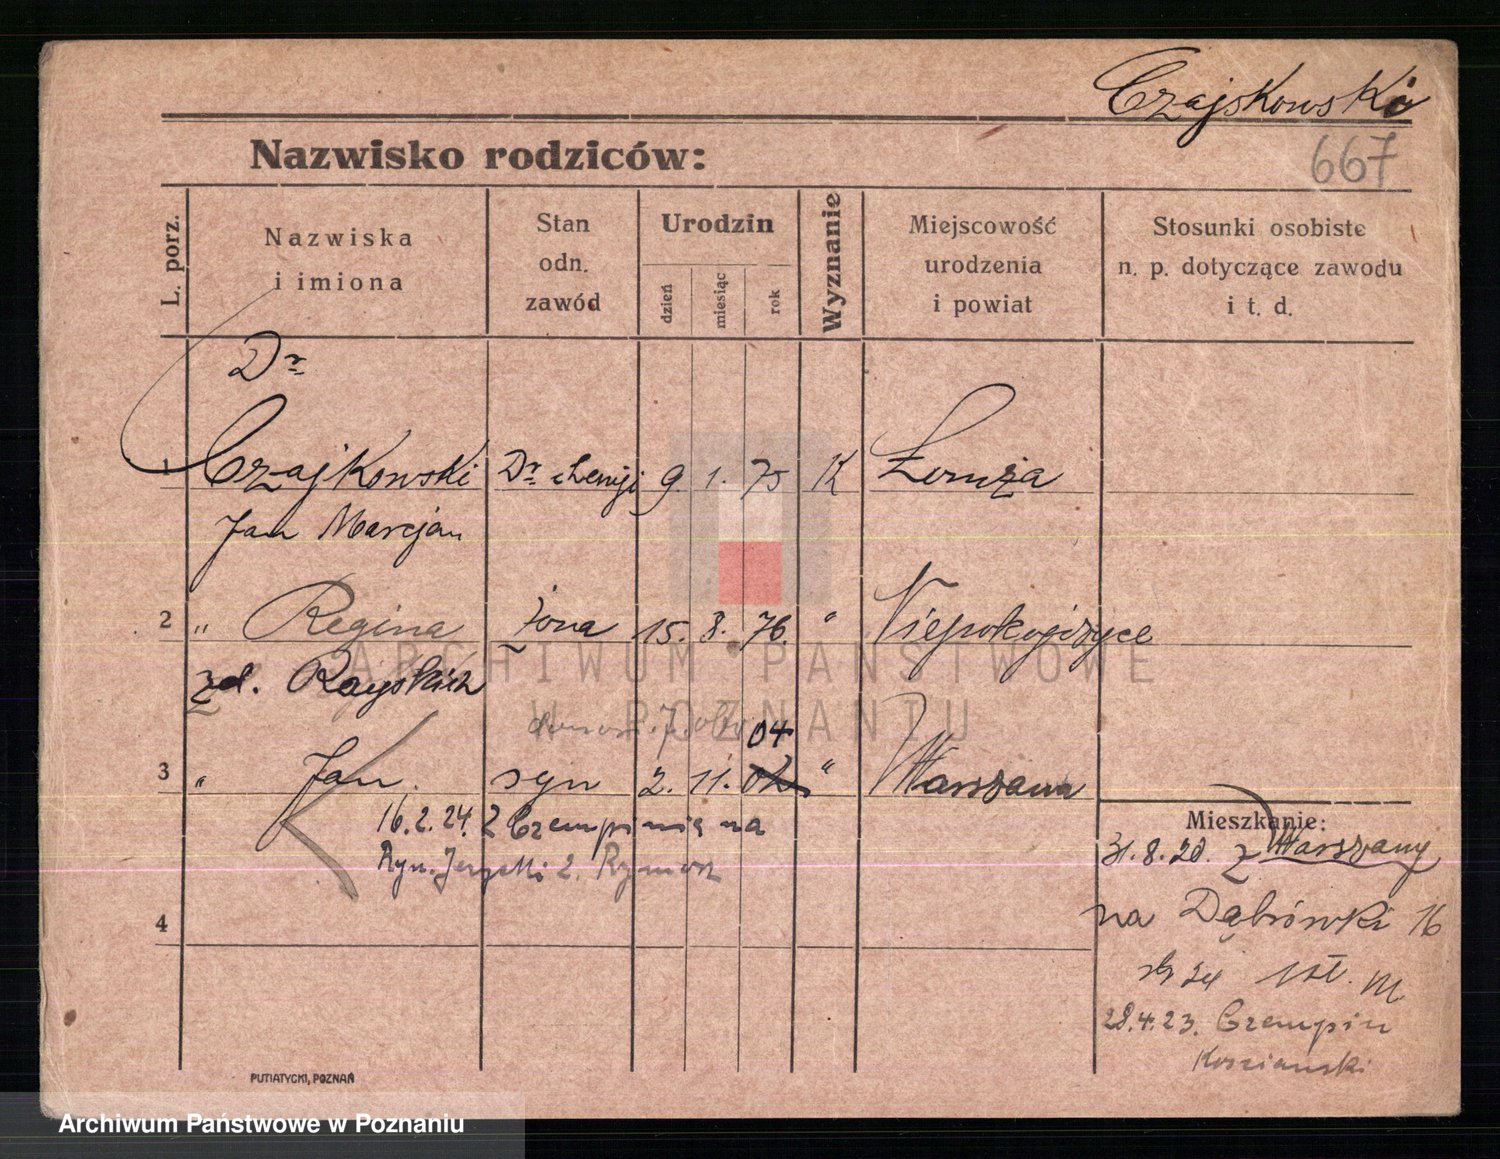 Czajkowski
667
Nazwisko rodziców:
L. porz.
Nazwiska
i imiona
Stan
odn.
zawód
Urodzin
dzień
miesiąc
rok
Wyznanie
Miejscowość
urodzenia
i powiat
Stosunki osobiste
n. p. dotyczące zawodu
i t. d.
Dr
1 Czajkowski Dr chemji 9. 1. 75 K Łomża
Jan Marcjan
2 " Regina żona 15. 8. 76. " Niepokojczyce
zd. Rayskich
04
3 " Jan syn 2. 11. " Warszawa
16.2.24. z Czempinia na
Ryn. Jeżycki 2.
4
Mieszkanie:
31.8.20. z Warszawy
na Dąbrówki 16
28.4.23. Czempin
Kościański
PUTIATYCKI, POZNAŃ
ARCHIWUM PAŃSTWOWE
W POZNANIU
Archiwum Państwowe w Poznaniu